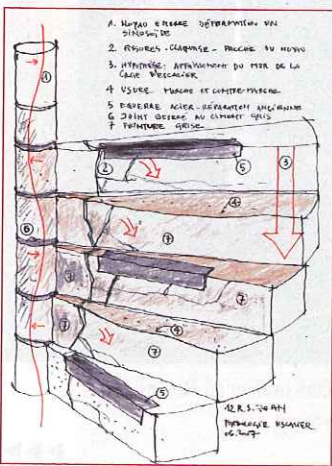 1. NOYAU PIERRE DÉFORMATION EN
SINOSOÏDE
2 FISSURES - CLAQUAGE - PROCHE DU NOYAU
3. HYPOTHÈSE: AFFAISSEMENT DU MUR DE LA
CAGE D'ESCALIER
4 USURE MARCHE ET CONTRE-MARCHE
5 EQUERRE ACIER - RÉPARATION ANCIENNE
6 JOINT AU CIMENT GRIS
7 PEINTURE GRISE
1
2
5
3
4
7
6
7
7
7
4
7
5
12 R. S. JEAN
ESCALIER
06.2007